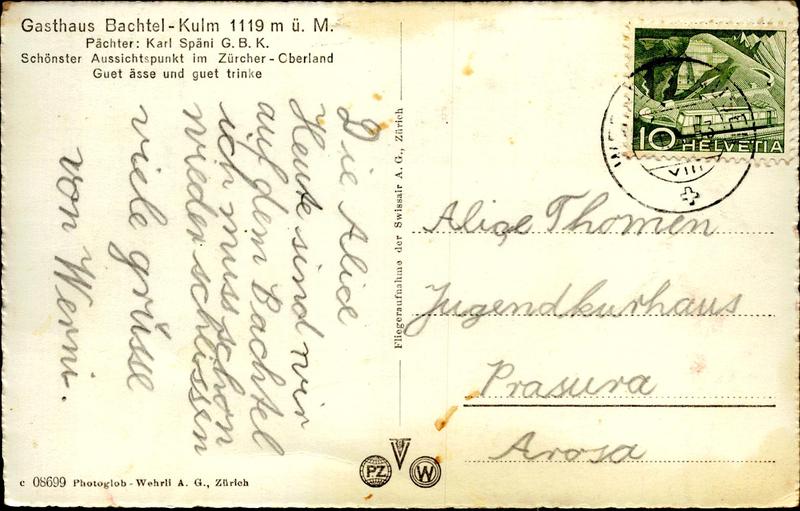 Gasthaus Bachtel-Kulm 1119 m ü. M.
Pächter: Karl Späni G. B. K.
Schönster Aussichtspunkt im Zürcher-Oberland
Guet ässe und guet trinke
Die Alice
Heute sind wir
auf dem Bachtel
ich muss schon
wieder schliessen
viele grüsse
von Werni.
Fliegeraufnahme der Swissair A. G., Zürich
10 HELVETIA
VIII
Alice Thomen
Jugendkurhaus
Prasura
Arosa
c 08699 Photoglob-Wehrli A. G., Zürich
PZ
W